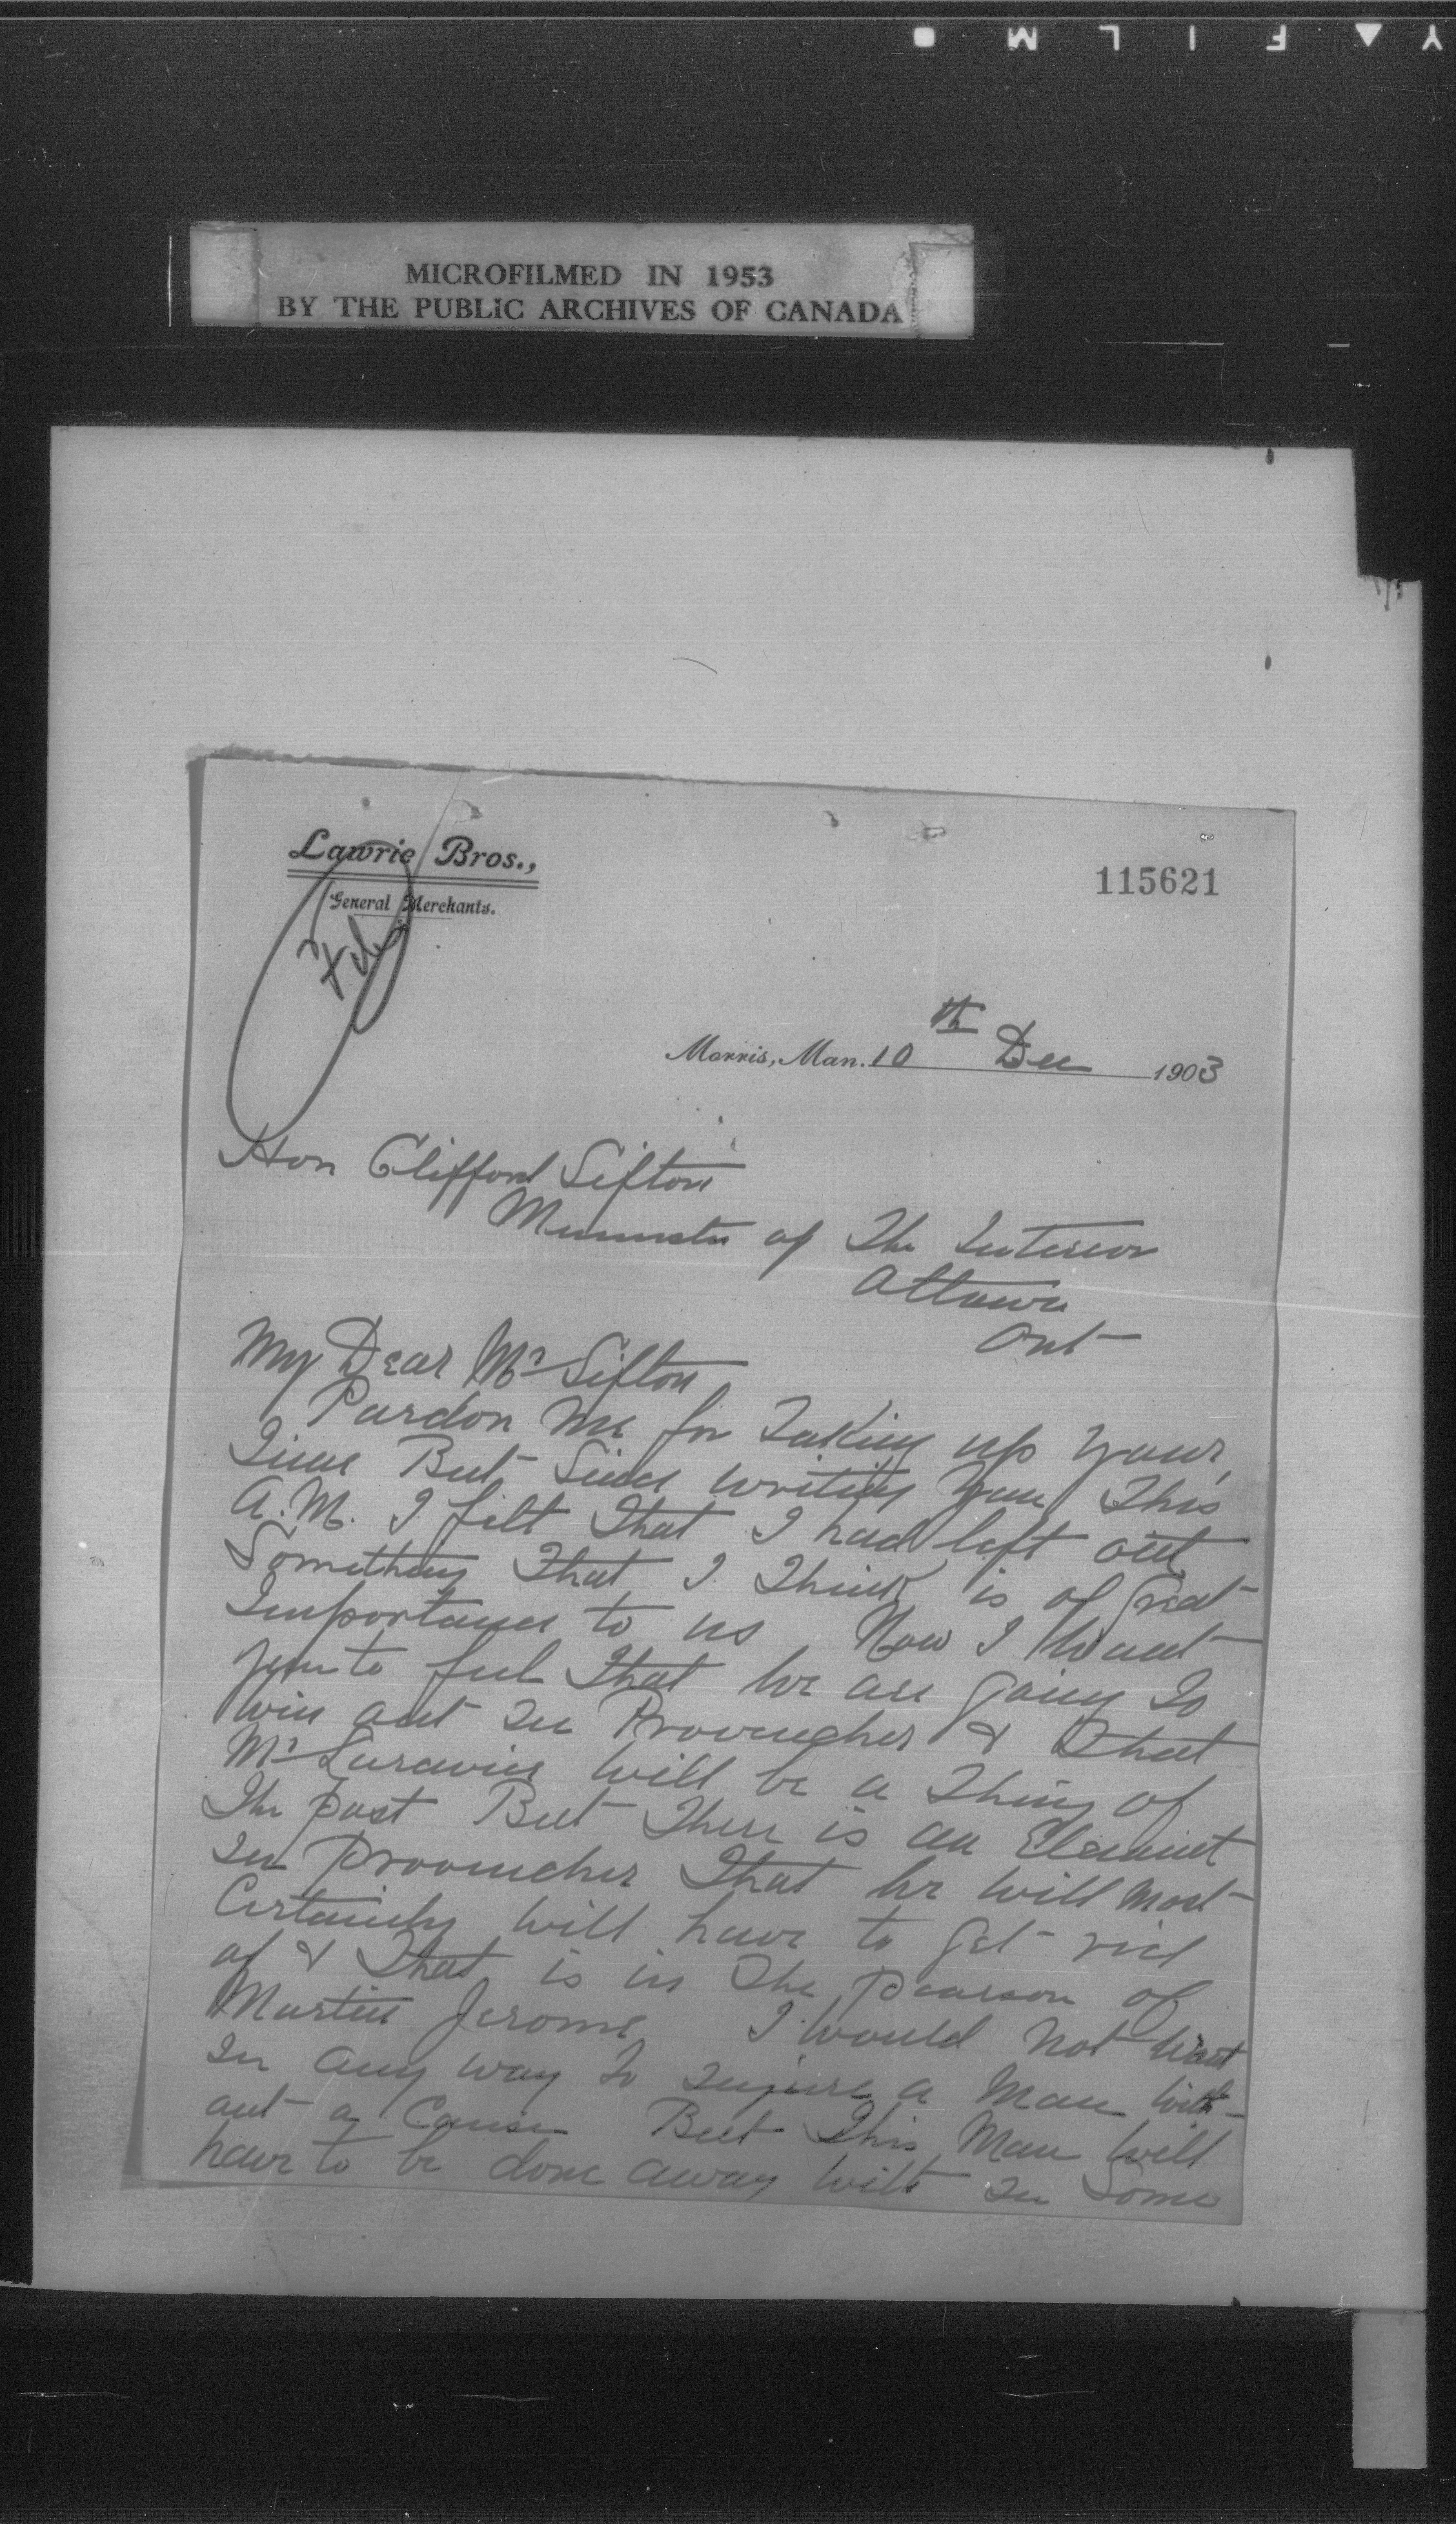 Y ▲ F I L M ●
MICROFILMED IN 1953
BY THE PUBLIC ARCHIVES OF CANADA
Lawrie Bros.,
General Merchants.
File
115621
Morris, Man. 10th Dec 1903
Hon Clifford Sifton
Minister of The Interior
Ottawa
Ont
My Dear Mr Sifton
Pardon me for Taking up your
Time But Since writing you This
A.M. I felt That I had left out
Something That I Think is of Great
Importance to us Now I Want
you to feel That we are going To
win out In Provencher & That
Mr Larivier will be a Thing of
The past But There is an Element
In Provencher That we will Most
Certainly will have to get rid
of & That is in The pearson of
Martin Jerome I would not want
In any way To Injure a Man with-
out a Cause But This Man will
have to be done away with In Some